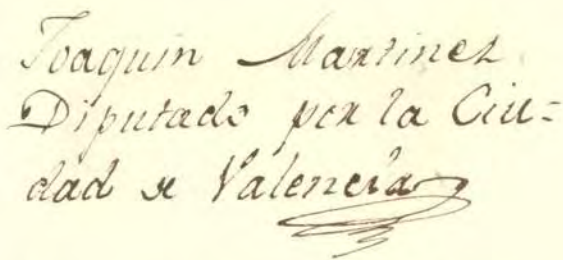 Joaquin Martinez
Diputado por la Ciu=
dad de Valencia